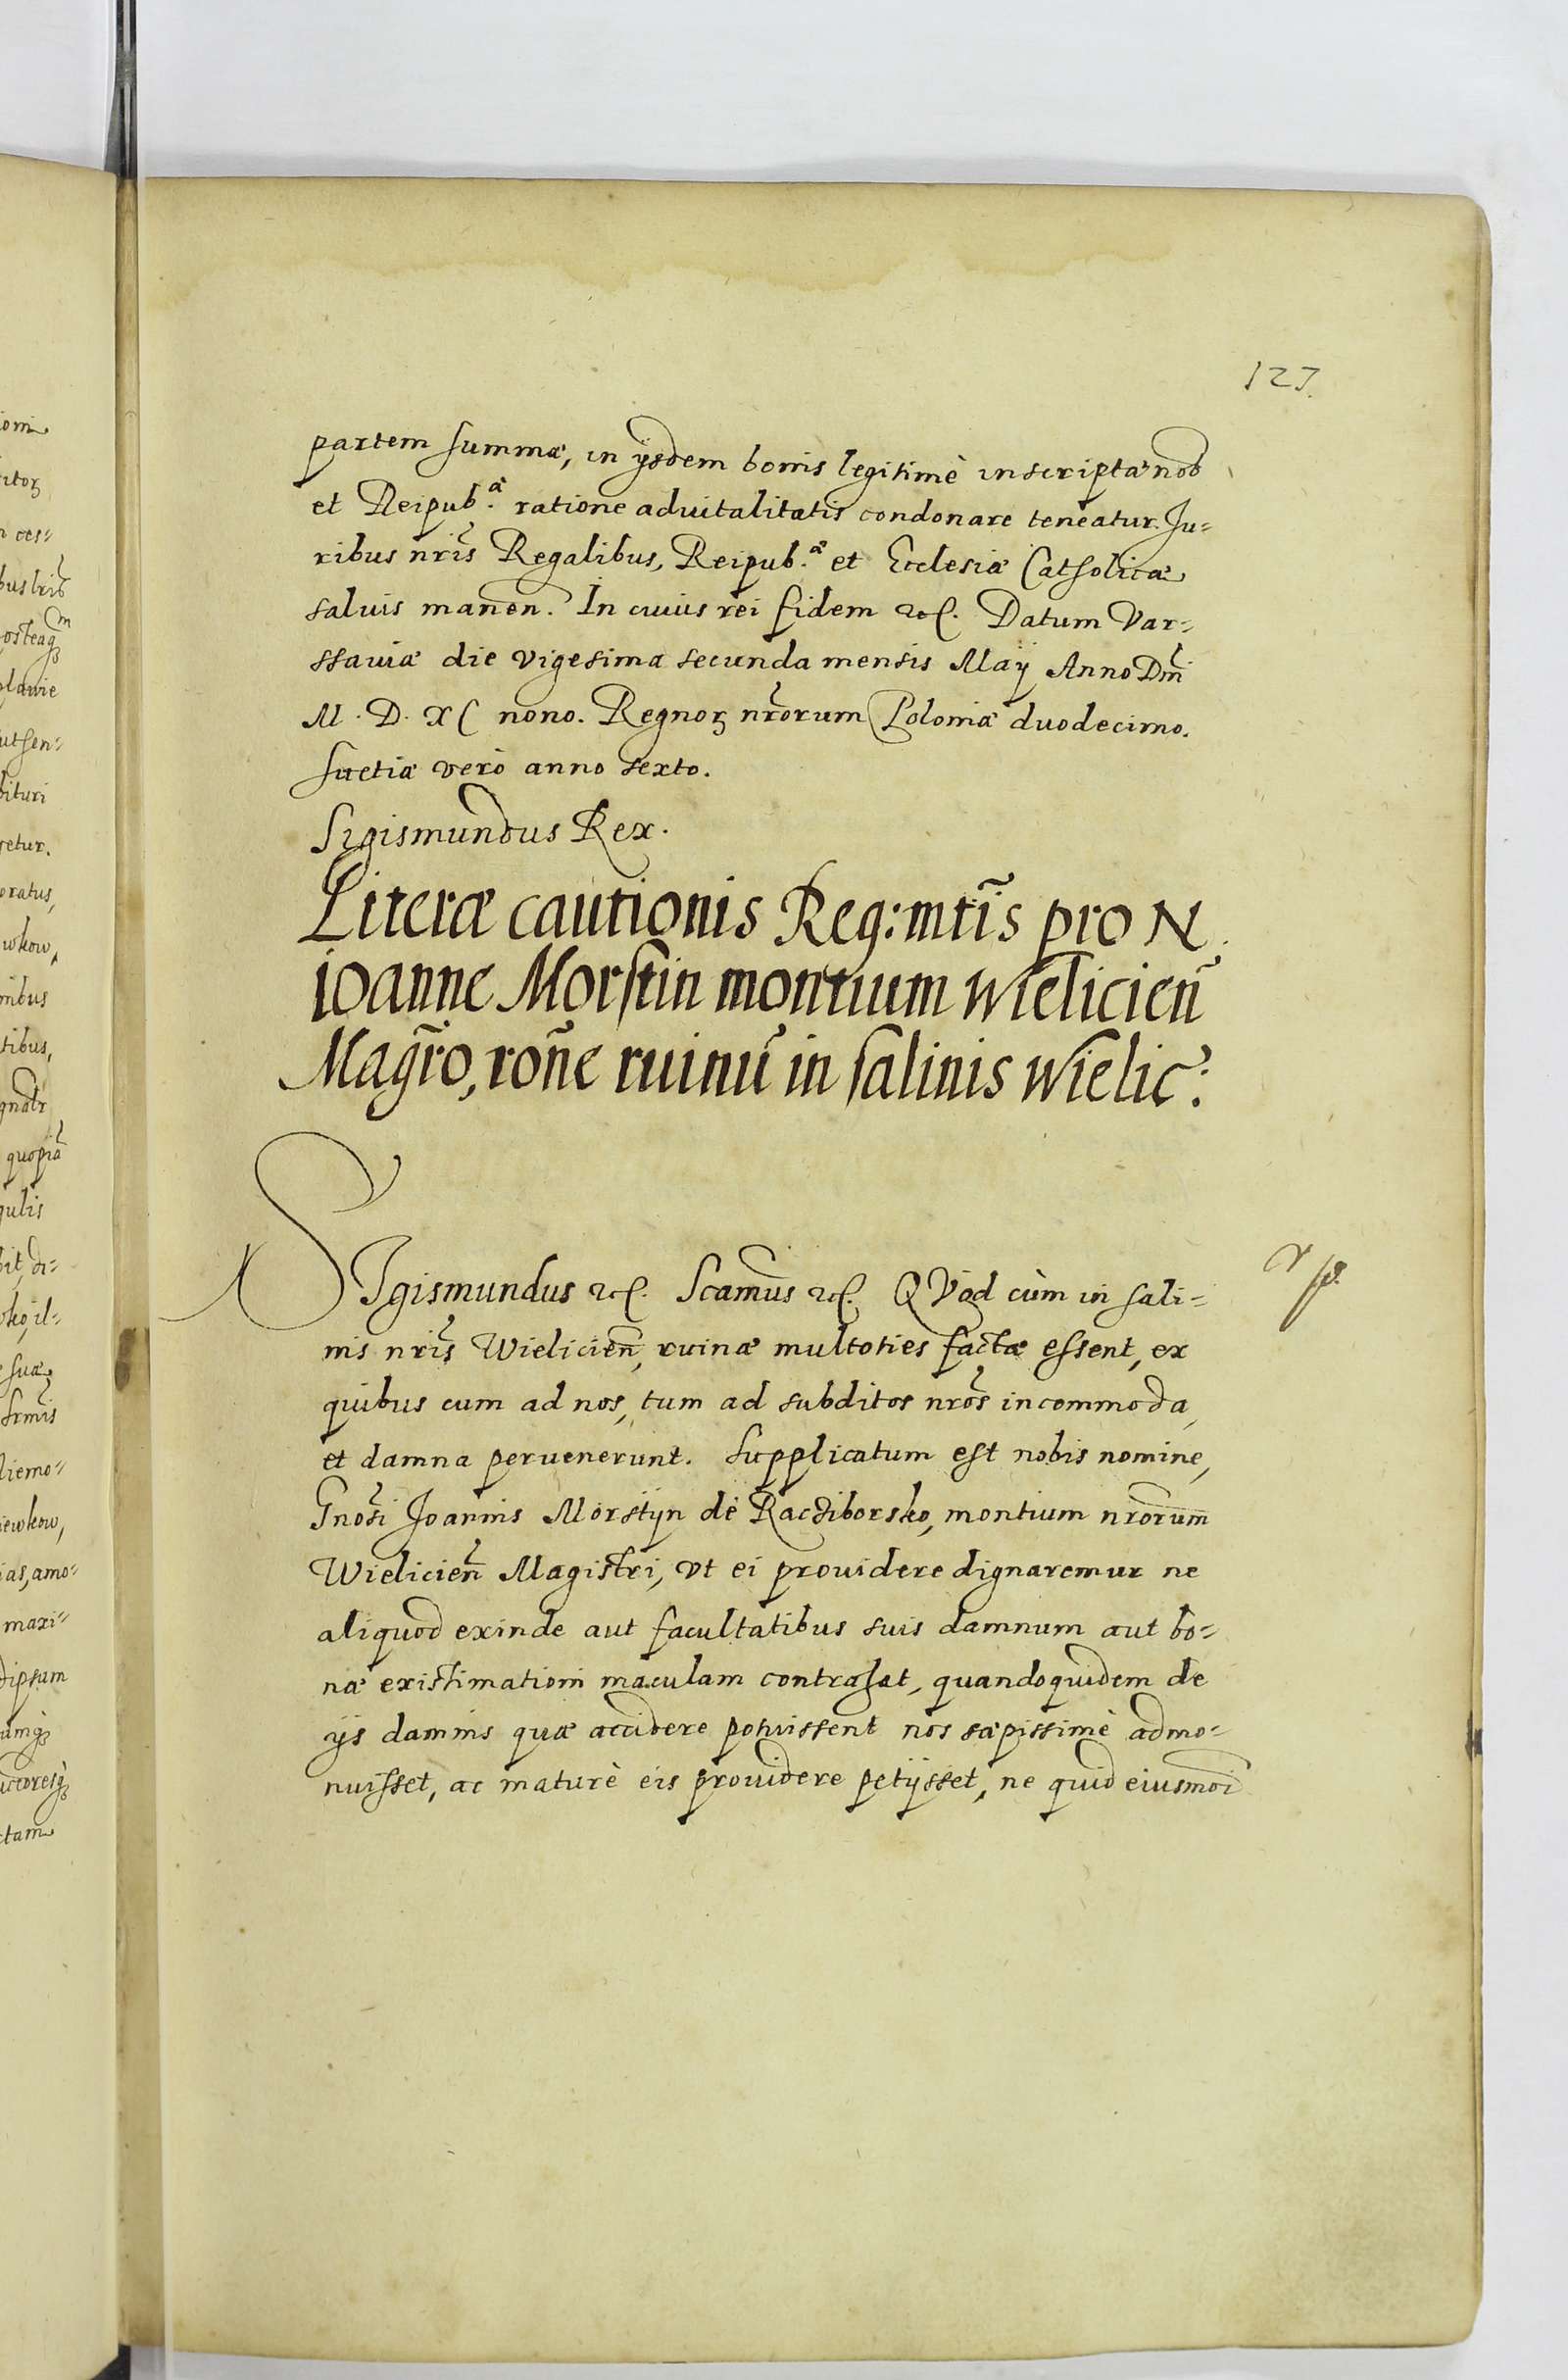 127.
partem summæ, in ijsdem bonis legitimè inscriptæ nob
et Reipub.æ ratione aduitalitatis condonare teneatur. Ju-
ribus nris Regalibus, Reipub.æ et Ecclesiæ Catholicæ
saluis manen. In cuius rei fidem etc. Datum Var-
ssauiæ die vigesima secunda mensis Maij Anno Dni
M. D. XC nono. Regnoꝝ nrorum Poloniæ duodecimo.
Suetiæ verò anno sexto.
Sigismundus Rex.
Literæ cautionis Reg: mtis pro N.
Joanne Morstin montium Wielicien
Magro, rone ruinu in salinis Wielic:
SIgismundus etc. Scamus etc. QVod cùm in sali-
nis nris Wielicien, ruinæ multoties factæ essent, ex
quibus cum ad nos, tum ad subditos nros incommoda,
et damna peruenerunt. Supplicatum est nobis nomine,
Gnosi Joannis Morstijn de Racziborsko, montium nrorum
Wielicien Magistri, vt ei prouidere dignaremur ne
aliquod exinde aut facultatibus suis damnum aut bo-
næ existimationi maculam contrahat, quandoquidem de
ijs damnis quæ accidere potuissent nos sæpissimè admo-
nuisset, ac maturè eis prouidere petijsset, ne quid eiusmoi